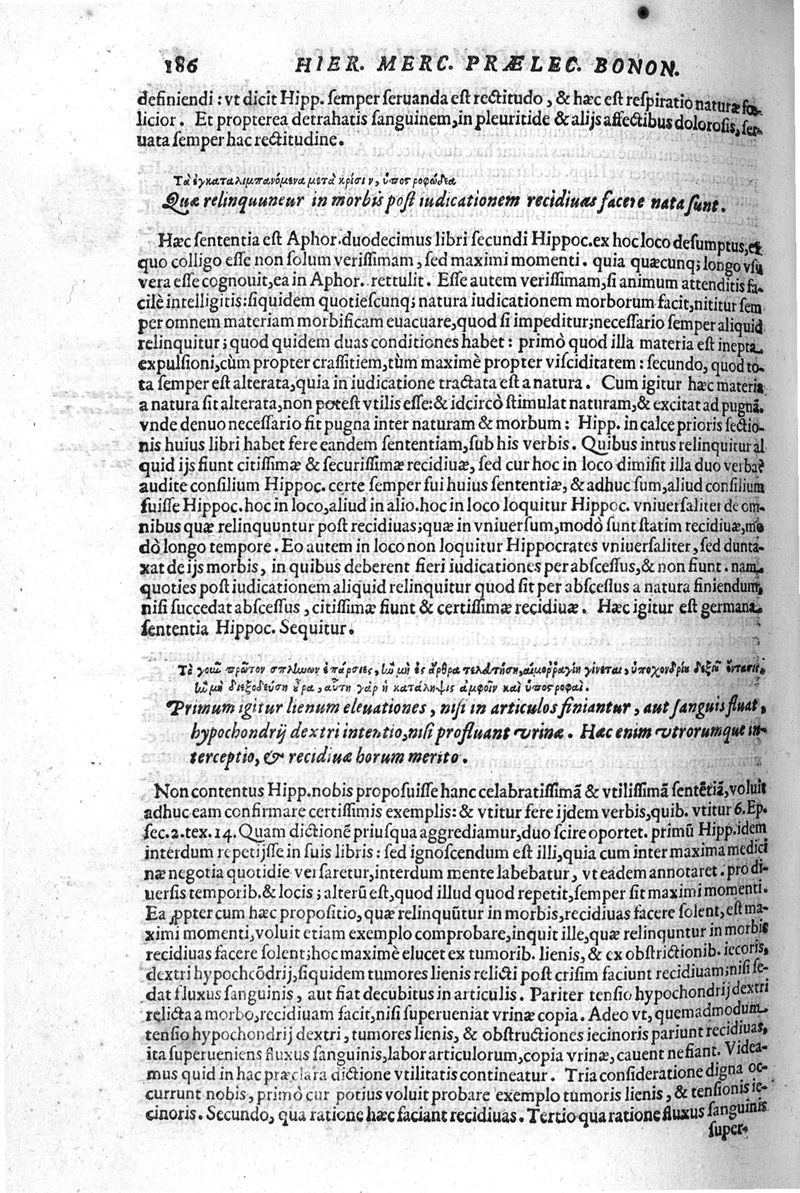 186 HIER. MERC. PRÆLEC. BONON.
definiendi : vt dicit Hipp. ſemper ſeruanda eſt rectitudo, & hæc eſt reſpiratio naturæ fœ-
licior. Et propterea detrahatis ſanguinem, in pleuritide & alijs affectibus doloroſis, ſer-
uata ſemper hac rectitudine.
Τὰ ἐγκαταλιμπανόμενα μετὰ κρίσιν, ὑποστροφώδεα
Quæ relinquuneur in morbis poſt iudicationem recidiuas facere nata ſunt.
Hæc ſententia eſt Aphor. duodecimus libri ſecundi Hippoc. ex hoc loco deſumptus, et
quo colligo eſſe non ſolum veriſſimam, ſed maximi momenti. quia quæcunq; longo vſu
vera eſſe cognouit, ea in Aphor. rettulit. Eſſe autem veriſſimam, ſi animum attenditis fa-
cilè intelligitis: ſiquidem quotieſcunq; natura iudicationem morborum facit, nititur ſem
per omnem materiam morbificam euacuare, quod ſi impeditur; neceſſario ſemper aliquid
relinquitur; quod quidem duas conditiones habet : primò quod illa materia eſt inepta
expulſioni, cùm propter craſſitiem, tùm maximè propter viſciditatem : ſecundo, quod to-
ta ſemper eſt alterata, quia in iudicatione tractata eſt a natura. Cum igitur hæc materia
a natura ſit alterata, non poteſt vtilis eſſe: & idcircò ſtimulat naturam, & excitat ad pugnã.
vnde denuo neceſſario fit pugna inter naturam & morbum : Hipp. in calce prioris ſectio-
nis huius libri habet fere eandem ſententiam, ſub his verbis. Quibus intus relinquitur al
quid ijs fiunt citiſſimæ & ſecuriſſimæ recidiuæ, ſed cur hoc in loco dimiſit illa duo verba?
audite conſilium Hippoc. certe ſemper fui huius ſententiæ, & adhuc ſum, aliud conſilium
fuiſſe Hippoc. hoc in loco, aliud in alio. hoc in loco loquitur Hippoc. vniuerſaliter de om-
nibus quæ relinquuntur poſt recidiuas; quæ in vniuerſum, modò ſunt ſtatim recidiuæ, mo
dò longo tempore. Eo autem in loco non loquitur Hippocrates vniuerſaliter, ſed dunta-
xat de ijs morbis, in quibus deberent fieri iudicationes per abſceſſus, & non fiunt. nam
quoties poſt iudicationem aliquid relinquitur quod ſit per abſceſſus a natura finiendum,
niſi ſuccedat abſceſſus, citiſſimæ fiunt & certiſſimæ recidiuæ. Hæc igitur eſt germana
ſententia Hippoc. Sequitur.
πρῶτον σπλωων ἐπάρσιες, μὴ ἐς ἄρθρα τελευτήσῃ, αἱμορραγίη γίνεται, ὑποχονδρίε δεξιοῦ
μὴ διεξοδεύσῃ ὖρα, αὕτη γάρ ἡ κατάληψις ἀμφοῖν καὶ ὑποστροφαί.
Primum igitur lienum eleuationes, niſi in articulos finiantur, aut ſanguis fluat,
hypochondrij dextri intentio, niſi profluant vrinæ. Hæc enim vtrorumque in-
terceptio, & recidiuæ horum merito.
Non contentus Hipp. nobis propoſuiſſe hanc celabratiſſimã & vtiliſſimã ſentẽtiã, voluit
adhuc eam confirmare certiſſimis exemplis: & vtitur fere ijdem verbis, quib. vtitur 6. Ep.
ſec. 2. tex. 14. Quam dictionẽ priuſqua aggrediamur, duo ſcire oportet. primũ Hipp. idem
interdum repetijſſe in ſuis libris : ſed ignoſcendum eſt illi, quia cum inter maxima medici
næ negotia quotidie verſaretur, interdum mente labebatur, vt eadem annotaret. pro di-
uerſis temporib. & locis; alterũ eſt, quod illud quod repetit, ſemper ſit maximi momenti.
Ea ꝓpter cum hæc propoſitio, quæ relinquũtur in morbis, recidiuas facere ſolent, eſt ma-
ximi momenti, voluit etiam exemplo comprobare, inquit ille, quæ relinquntur in morbis
recidiuas facere ſolent; hoc maximè elucet ex tumorib. lienis, & ex obſtrictionib. iecoris,
dextri hypochõdrij, ſiquidem tumores lienis relicti poſt criſim faciunt recidiuam; niſi ſe-
dat fluxus ſanguinis, aut fiat decubitus in articulis. Pariter tenſio hypochondrij dextri
relicta a morbo, recidiuam facit, niſi ſuperueniat vrinæ copia. Adeo vt, quemadmodum
tenſio hypochondrij dextri, tumores lienis, & obſtructiones iecinoris pariunt recidiuas,
ita ſuperueniens fluxus ſanguinis, labor articulorum, copia vrinæ, cauent ne fiant. Videa-
mus quid in hac præclara dictione vtilitatis contineatur. Tria conſideratione digna oc-
currunt nobis, primò cur potius voluit probare exemplo tumoris lienis, & tenſionis ie-
cinoris. Secundo, qua ratione hæc faciant recidiuas. Tertio qua ratione fluxus ſanguinis
ſuper-